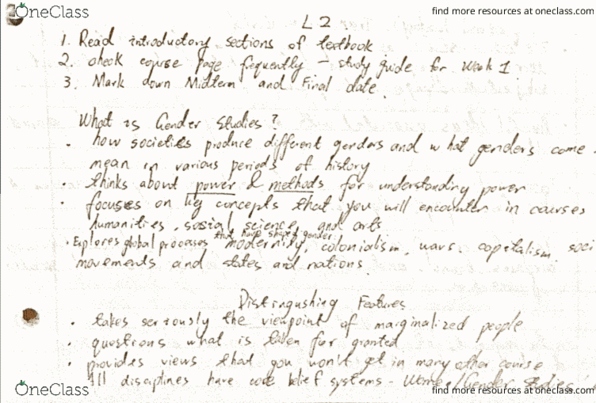 OneClass
find more resources at oneclass.com
L 2
1. Read introductory sections of textbook
2. check course page frequently - study guide for Week 1
3. Mark down Midterm and Final date.
What is Gender Studies?
· how societies produce different genders and what genders come
mean in various periods of history
· thinks about power & methods for understanding power
· focuses on key concepts that you will encounter in courses
humanities, social science and arts
· Explores global processes that have shaped gender: modernity, colonialism, wars, capitalism, soci
movements and states and nations
Distinguishing Features
· takes seriously the viewpoint of marginalized people
· questions what is taken for granted
· provides views that you won't get in many other course
All disciplines have core belief systems - Women/Gender Studies
OneClass
find more resources at oneclass.com